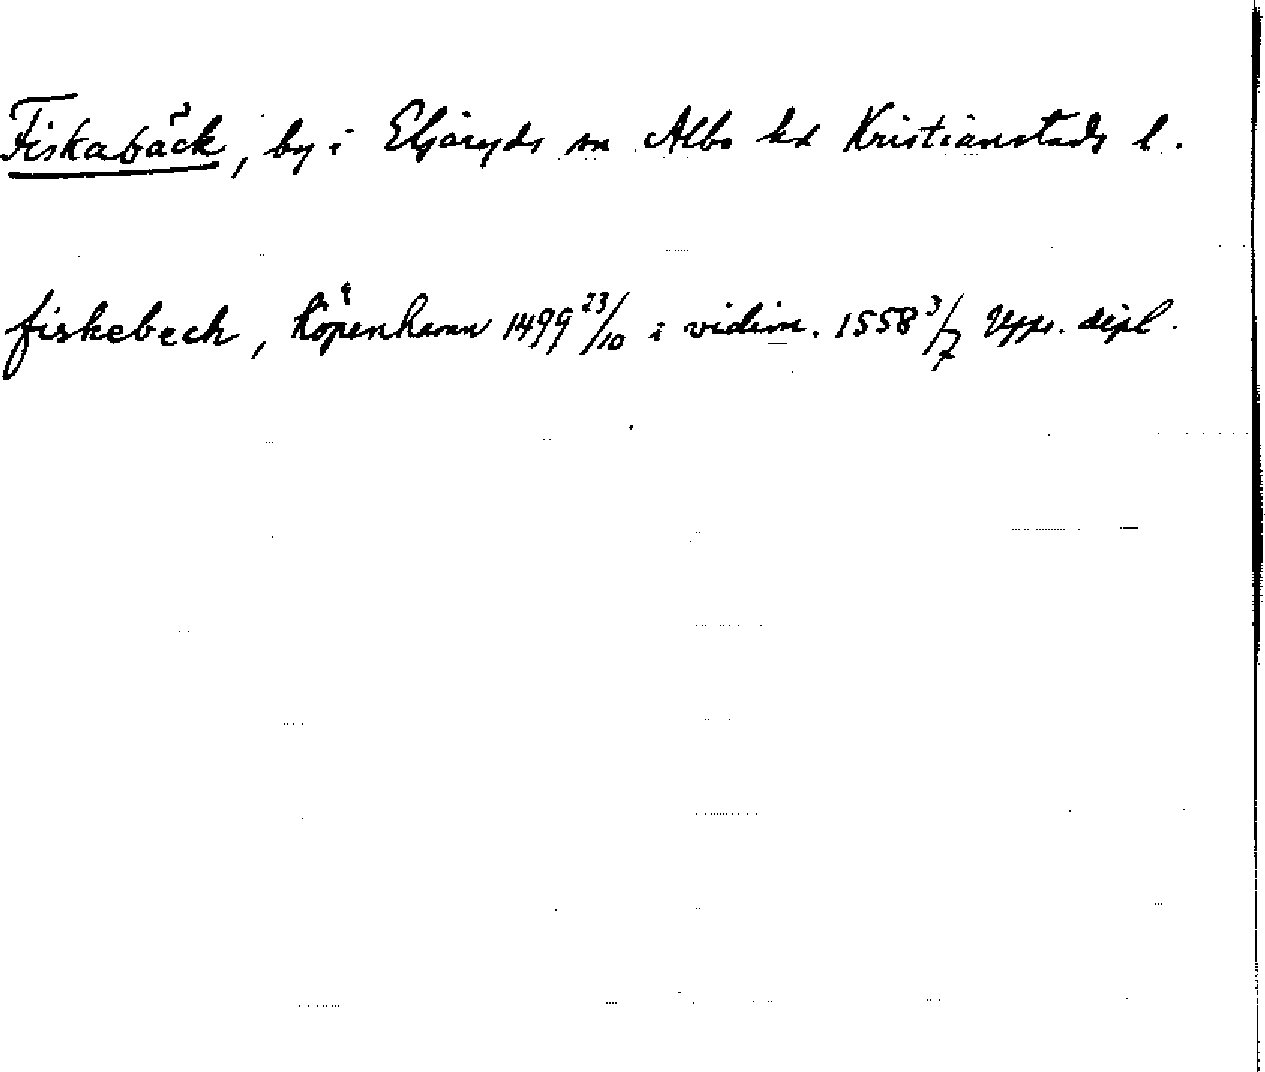 Fiskabäck, by i Eljaryds sn Albo hd Kristianstads l.
fiskebech, Köpenhamn 1499 23/10 i vidim. 1558 3/7 Upps. dipl.